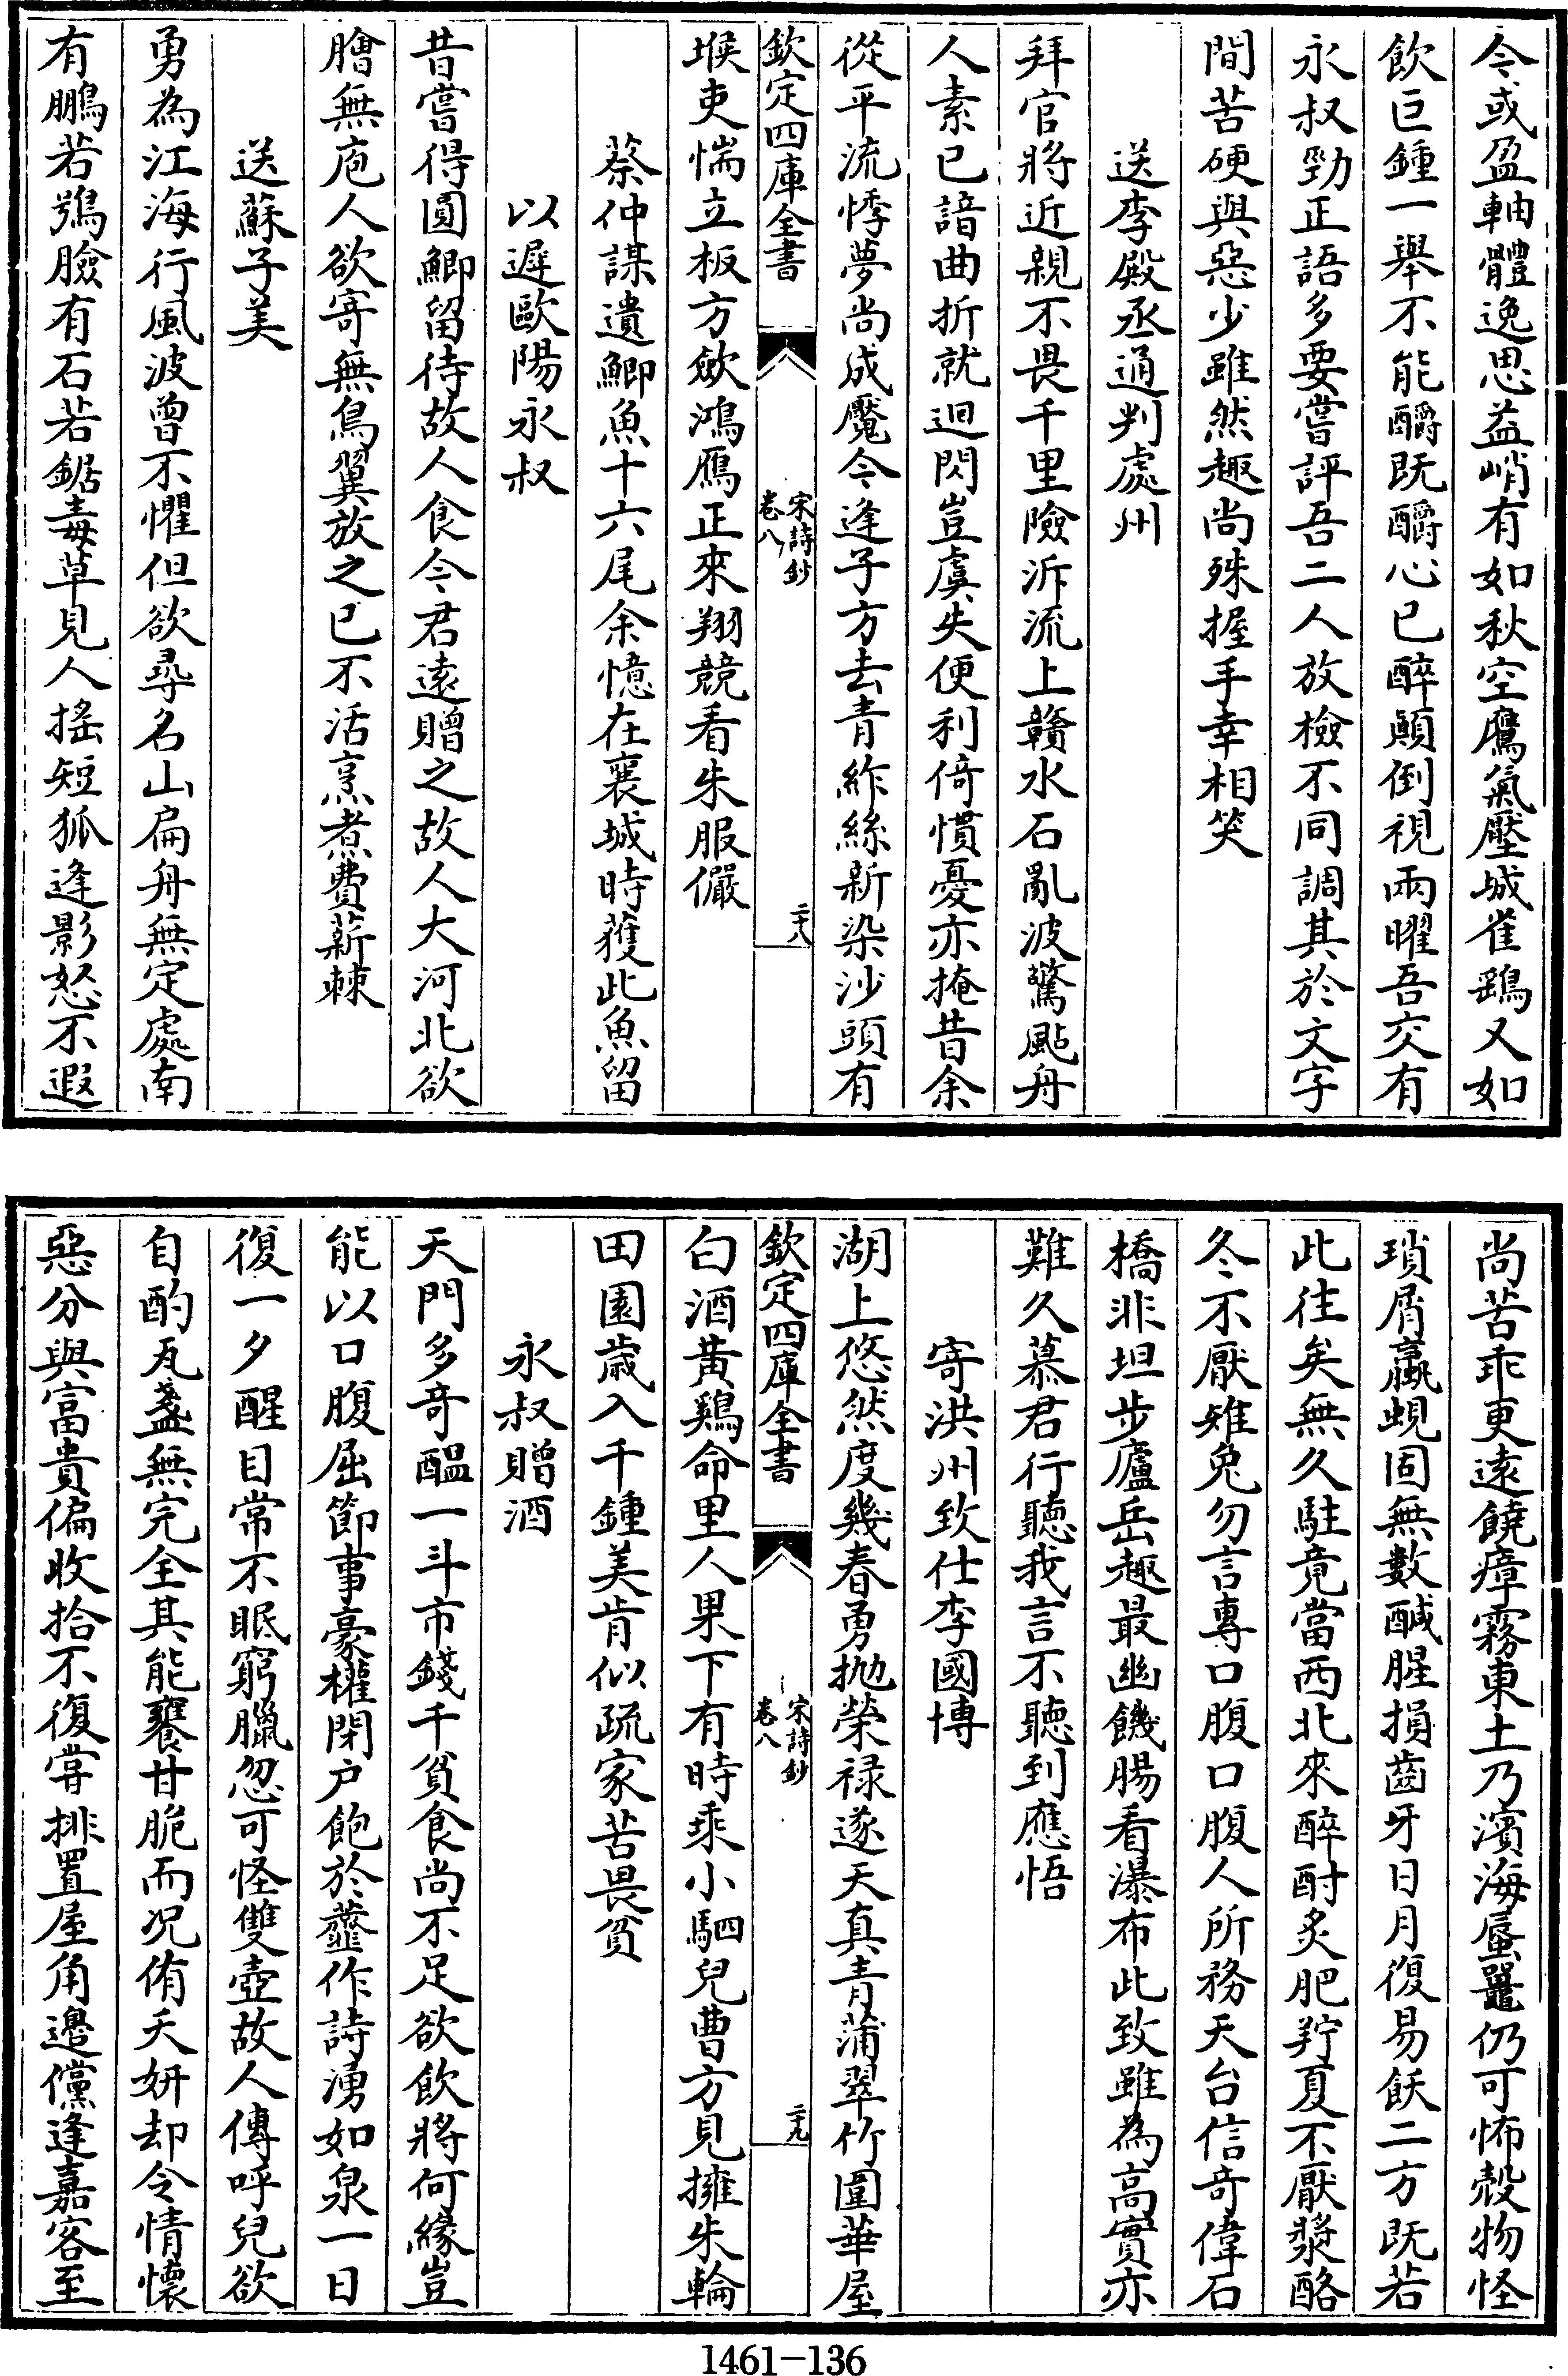 令或盈軸體逸思益峭有如秋空鷹氣壓城雀鷂又如
飲巨鍾一舉不能釂既釂心已醉顛倒視兩曜吾交有
永叔勁正語多要嘗評吾二人放檢不同調其於文字
間苦硬與惡少雖然趣尚殊握手幸相笑
送李殿丞通判處州
拜官將近親不畏千里險泝流上贛水石亂波驚颭舟
人素已諳曲折就迴閃豈虞失便利倚慣憂亦掩昔余
從平流悸夢尚成魘今逢子方去青紵絲新染沙頭有
欽定四庫全書
宋詩鈔
卷八
二十八
堠吏惴立板方斂鴻鴈正來翔競看朱服儼
蔡仲謀遺鯽魚十六尾余憶在襄城時獲此魚留
以遲歐陽永叔
昔嘗得圓鯽留待故人食今君遠贈之故人大河北欲
膾無庖人欲寄無鳥翼放之已不活烹煮費薪棘
送蘇子美
勇為江海行風波曾不懼但欲尋名山扁舟無定處南
有鵬若鴞臉有石若鋸毒草見人搖短狐逢影怒不遐
尚苦乖更遠饒瘴霧東土乃濱海蜃鼉仍可怖殻物怪
瑣屑蠃蜆固無數醎腥損齒牙日月復易飫二方既若
此往矣無久駐竟當西北來醉酎炙肥羜夏不厭漿酪
冬不厭雉兔勿言專口腹口腹人所務天台信奇偉石
橋非坦步廬岳趣最幽饑腸看瀑布此致雖為高實亦
難久慕君行聽我言不聽到應悟
寄洪州致仕李國博
湖上悠然度幾春勇抛榮禄遂天真青蒲翠竹圍華屋
欽定四庫全書
宋詩鈔
卷八
二十九
白酒黃鷄命里人果下有時乘小駟兒曹方見擁朱輪
田園歲入千鍾美肯似疏家苦畏貧
永叔贈酒
天門多奇醖一斗市錢千貧食尚不足欲飲將何緣豈
能以口腹屈節事豪權閉户飽於虀作詩湧如泉一日
復一夕醒目常不眠窮臘忽可怪雙壺故人傳呼兒欲
自酌瓦盞無完全其能饔甘脆而况侑夭妍却令情懷
惡分與富貴偏收拾不復甞排置屋角邊儻逢嘉客至
1461-136